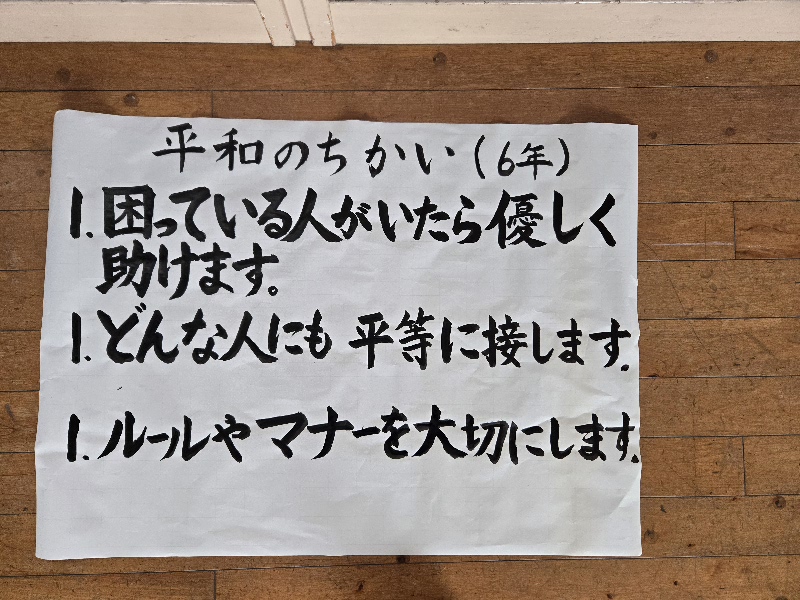 平和のちかい(6年)
1.困っている人がいたら優しく
助けます。
1.どんな人にも平等に接します.
1.ルールやマナーを大切にします.